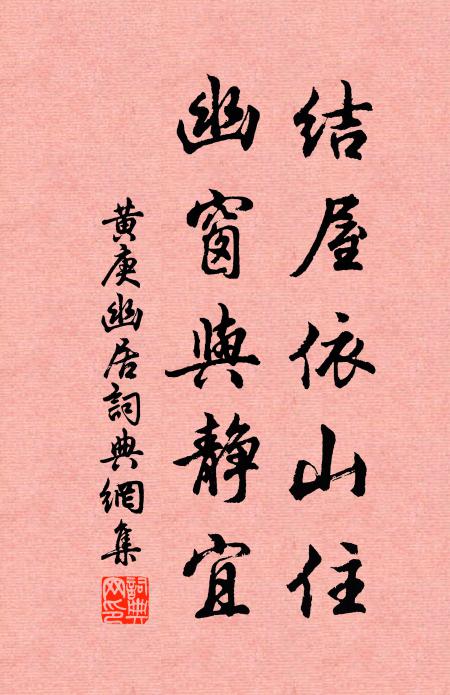 結屋依山住
幽窗與静宜
黄庚幽居詞典網集
詞典網印